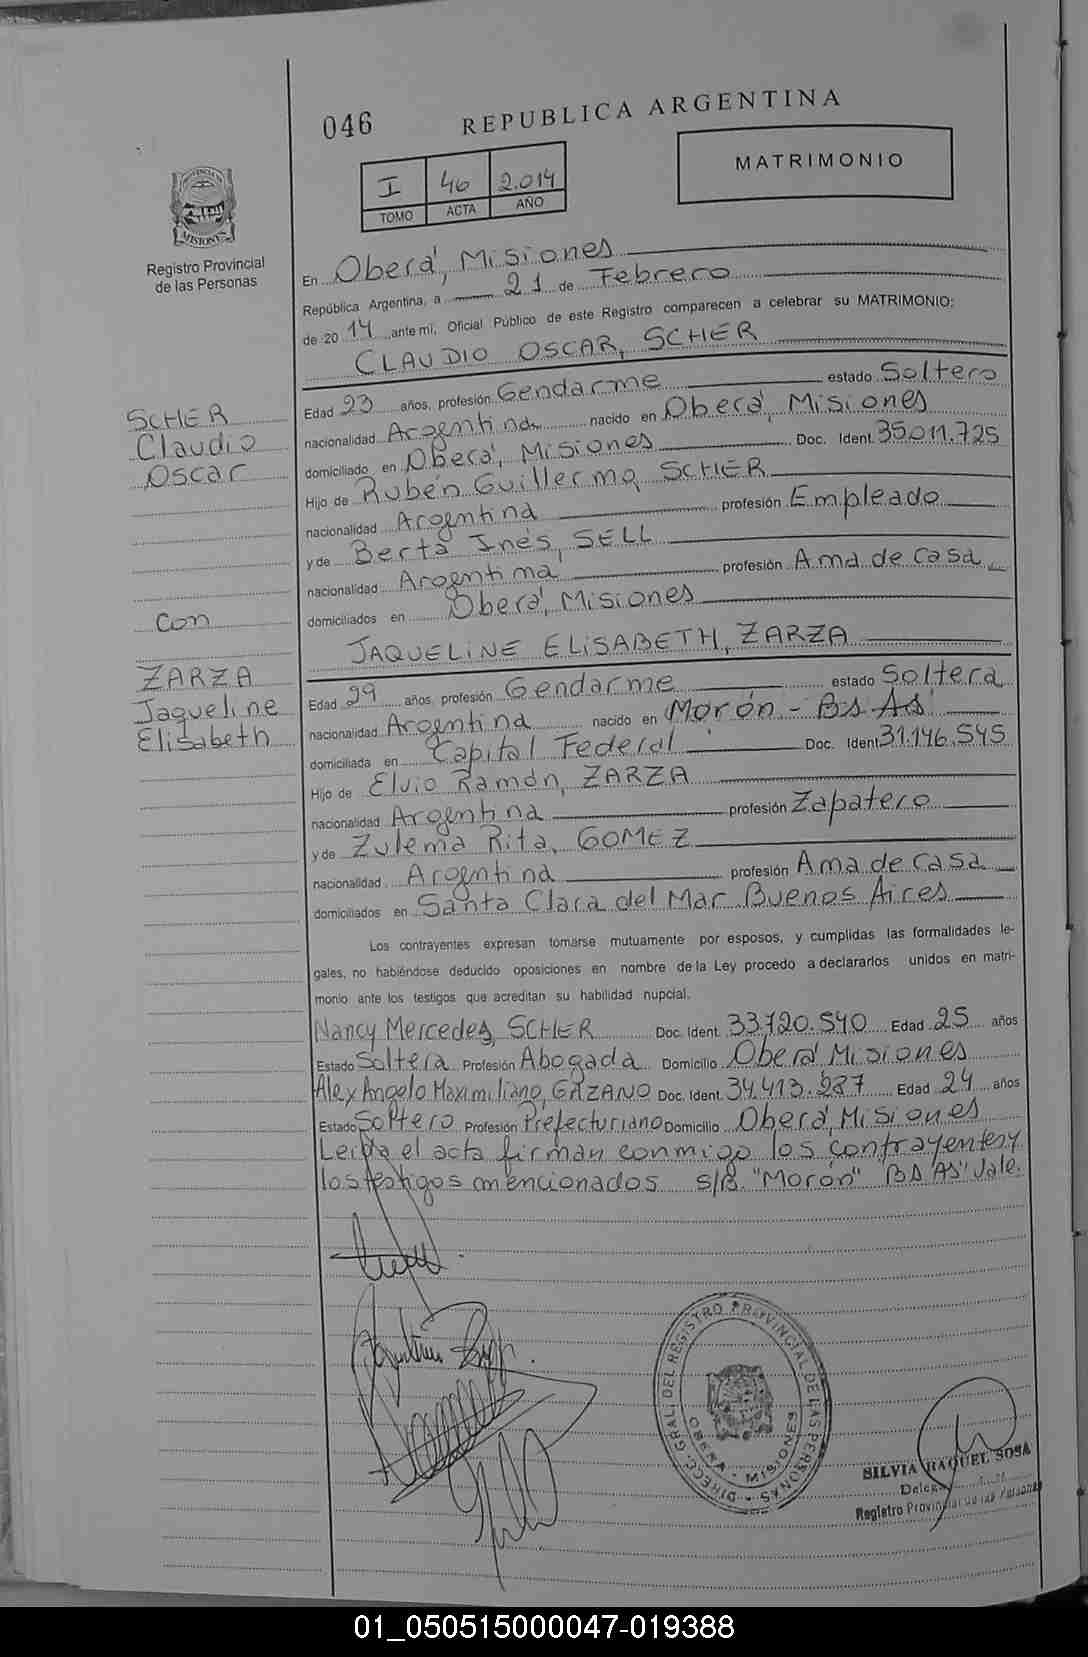 046 REPUBLICA ARGENTINA
MATRIMONIO
I 46 2.014
TOMO ACTA AÑO
PROVINCIA DE
MISIONES
Registro Provincial
de las Personas
En Oberá, Misiones
República Argentina, a 21 de Febrero
de 2014 ante mí, Oficial Público de este Registro comparecen a celebrar su MATRIMONIO:
CLAUDIO OSCAR, SCHER
SCHER
Claudio
Oscar
Con
ZARZA
Jaqueline
Elisabeth
Edad 23 años, profesión Gendarme estado Soltero
nacionalidad Argentina nacido en Oberá, Misiones
domiciliado en Oberá, Misiones Doc. Ident. 35.011.725
Hijo de Rubén Guillermo, SCHER
nacionalidad Argentina profesión Empleado
y de Berta Inés, SELL
nacionalidad Argentina profesión Ama de casa
domiciliados en Oberá, Misiones
JAQUELINE ELISABETH, ZARZA
Edad 29 años, profesión Gendarme estado Soltera
nacionalidad Argentina nacido en Morón - Bs As
domiciliada en Capital Federal Doc. Ident. 31.146.545
Hijo de Elvio Ramón, ZARZA
nacionalidad Argentina profesión Zapatero
y de Zulema Rita, GOMEZ
nacionalidad Argentina profesión Ama de casa
domiciliados en Santa Clara del Mar Buenos Aires
Los contrayentes expresan tomarse mutuamente por esposos, y cumplidas las formalidades le-
gales, no habiéndose deducido oposiciones en nombre de la Ley procedo a declararlos unidos en matri-
monio ante los testigos que acreditan su habilidad nupcial.
Nancy Mercedes, SCHER Doc. Ident. 33.720.540 Edad 25 años
Estado Soltera Profesión Abogada Domicilio Oberá Misiones
Alex Angelo Maximiliano, GAZANO Doc. Ident. 34.413.287 Edad 24 años
Estado Soltero Profesión Prefecturiano Domicilio Oberá, Misiones
Leída el acta firman conmigo los contrayentes y
los testigos mencionados s/B. "Morón" "Bs As" Vale.
DIRECC. GRAL. DEL REGISTRO PROVINCIAL DE LAS PERSONAS
OBERA - MISIONES
SILVIA RAQUEL SOSA
Registro Provincial de las Personas
01_050515000047-019388